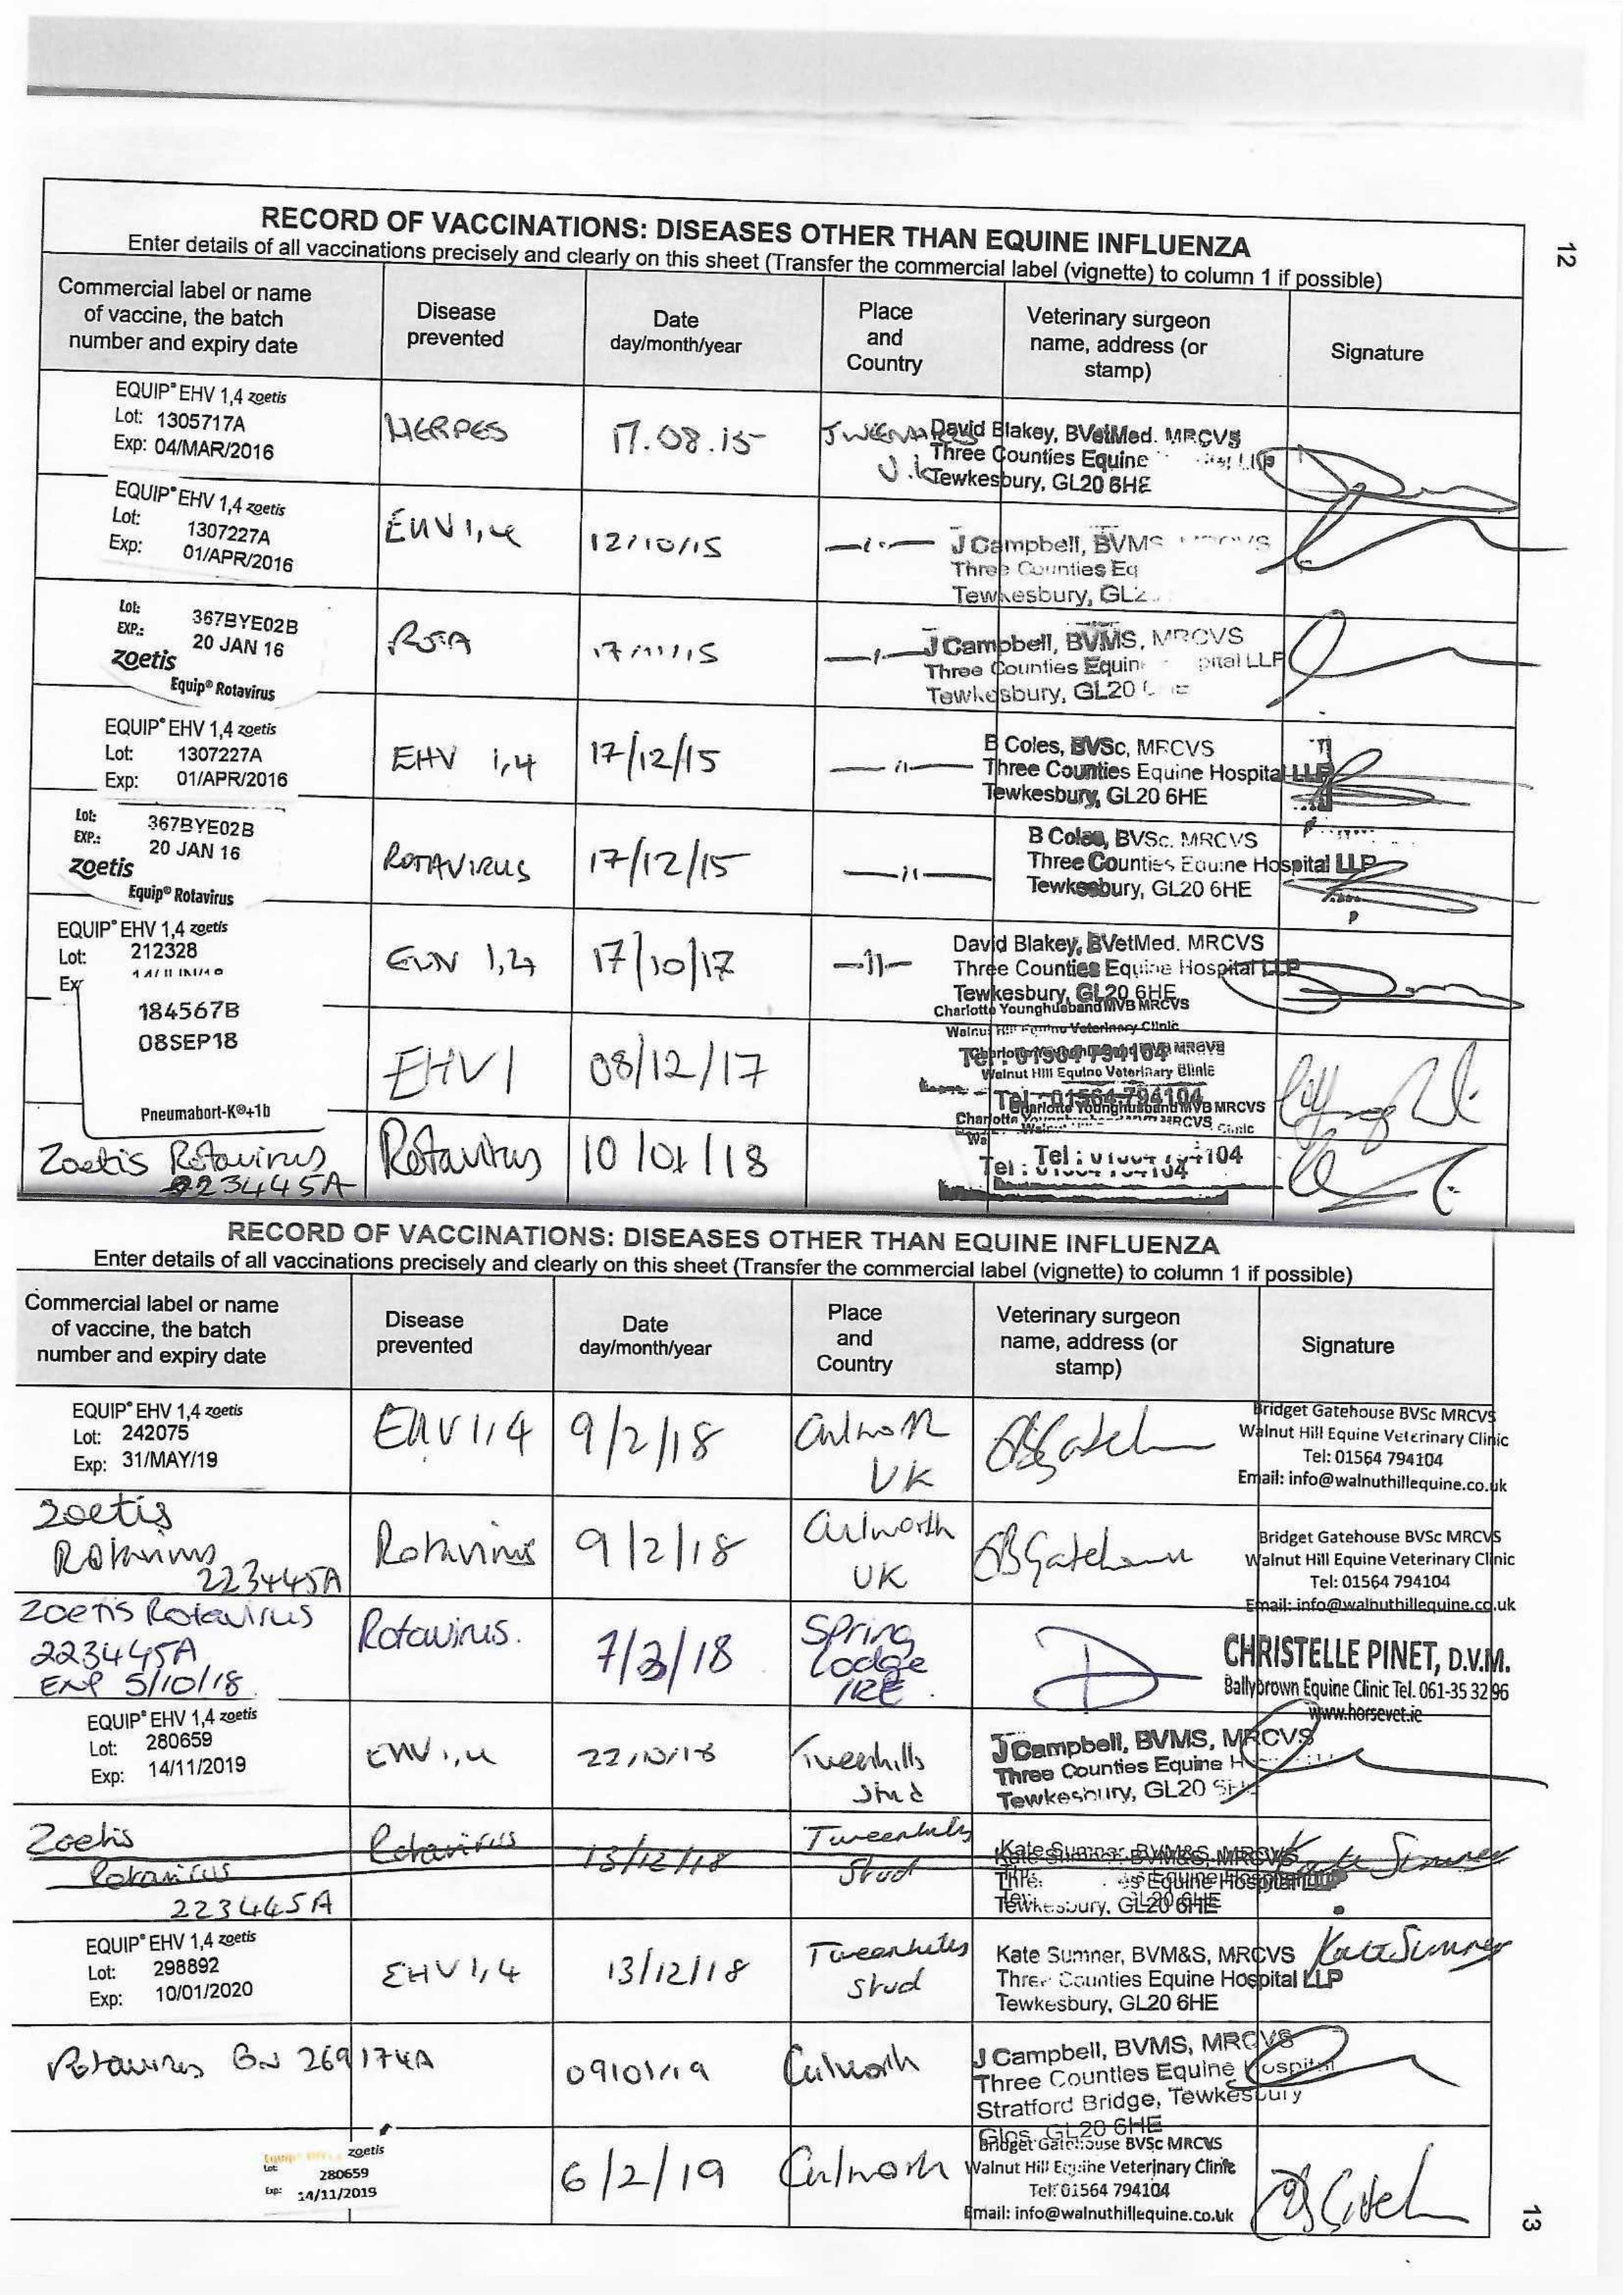 12
RECORD OF VACCINATIONS: DISEASES OTHER THAN EQUINE INFLUENZA
Enter details of all vaccinations precisely and clearly on this sheet (Transfer the commercial label (vignette) to column 1 if possible)
Commercial label or name of vaccine, the batch number and expiry date
Disease prevented
Date day/month/year
Place and Country
Veterinary surgeon name, address (or stamp)
Signature
EQUIP® EHV 1,4 zoetis
Lot: 1305717A
Exp: 04/MAR/2016
HERPES
17.08.15
U.K
David Blakey, BVetMed. MRCVS
Three Counties Equine
Tewkesbury, GL20 6HE
EQUIP® EHV 1,4 zoetis
Lot: 1307227A
Exp: 01/APR/2016
EHV 1,4
12/10/15
—ıı—
J Campbell, BVMS
Three Counties Eq
Tewkesbury, GL2
Lot: 367BYE02B
EXP.: 20 JAN 16
zoetis
Equip® Rotavirus
17/11/15
J Campbell, BVMS, MRCVS
Three Counties Equin pital LLP
Tewkesbury, GL20
EQUIP® EHV 1,4 zoetis
Lot: 1307227A
Exp: 01/APR/2016
EHV 1,4
17/12/15
—ıı—
B Coles, BVSc, MRCVS
Three Counties Equine Hospital LLP
Tewkesbury, GL20 6HE
Lot: 367BYE02B
EXP.: 20 JAN 16
zoetis
Equip® Rotavirus
ROTAVIRUS
17/12/15
—ıı—
B Coles, BVSc. MRCVS
Three Counties Equine Hospital LLP
Tewkesbury, GL20 6HE
EQUIP® EHV 1,4 zoetis
Lot: 212328
17/10/17
—ıı—
David Blakey, BVetMed. MRCVS
Three Counties Equine Hospital LLP
Tewkesbury, GL20 6HE
184567B
08SEP18
Pneumabort-K®+1b
EHV1
08/12/17
Charlotte Younghusband MVB MRCVS
Walnut Hill Equine Veterinary Clinic
Tel: 01564 794104
Zoetis Rotavirus
223445A
Rotavirus
10/01/18
Charlotte Younghusband MVB MRCVS
RECORD OF VACCINATIONS: DISEASES OTHER THAN EQUINE INFLUENZA
Enter details of all vaccinations precisely and clearly on this sheet (Transfer the commercial label (vignette) to column 1 if possible)
Commercial label or name of vaccine, the batch number and expiry date
Disease prevented
Date day/month/year
Place and Country
Veterinary surgeon name, address (or stamp)
Signature
EQUIP® EHV 1,4 zoetis
Lot: 242075
Exp: 31/MAY/19
EHV 1,4
9/2/18
Culworth
UK
Bridget Gatehouse BVSc MRCVS
Walnut Hill Equine Veterinary Clinic
Tel: 01564 794104
Email: info@walnuthillequine.co.uk
Zoetis
Rotavirus
223445A
Rotavirus
9/2/18
Culworth
UK
BGatehouse
Bridget Gatehouse BVSc MRCVS
Walnut Hill Equine Veterinary Clinic
Tel: 01564 794104
Email: info@walnuthillequine.co.uk
Zoetis Rotavirus
223445A
EXP 5/10/18
Rotavirus.
7/3/18
Spring
Lodge
IRE.
CHRISTELLE PINET, D.V.M.
Ballybrown Equine Clinic Tel. 061-35 32 96
www.horsevet.ie
EQUIP® EHV 1,4 zoetis
Lot: 280659
Exp: 14/11/2019
EHV 1,4
22/10/18
Tweenhills
Stud
J Campbell, BVMS, MRCVS
Three Counties Equine H
Tewkesbury, GL20
Zoetis
Rotavirus
223445A
Rotavirus
13/12/18
Tweenhills
Stud
Kate Sumner, BVM&S, MRCVS
Tewkesbury, GL20 6HE
Kate Sumner
EQUIP® EHV 1,4 zoetis
Lot: 298892
Exp: 10/01/2020
EHV 1,4
13/12/18
Tweenhills
Stud
Kate Sumner, BVM&S, MRCVS
Three Counties Equine Hospital LLP
Tewkesbury, GL20 6HE
Kate Sumner
Rotavirus BN 269174A
09/01/19
Culworth
J Campbell, BVMS, MRCVS
Three Counties Equine Hospital
Stratford Bridge, Tewkesbury
Glos, GL20 6HE
zoetis
Lot: 280659
Exp: 14/11/2019
6/2/19
Culworth
Bridget Gatehouse BVSc MRCVS
Walnut Hill Equine Veterinary Clinic
Tel: 01564 794104
Email: info@walnuthillequine.co.uk
13